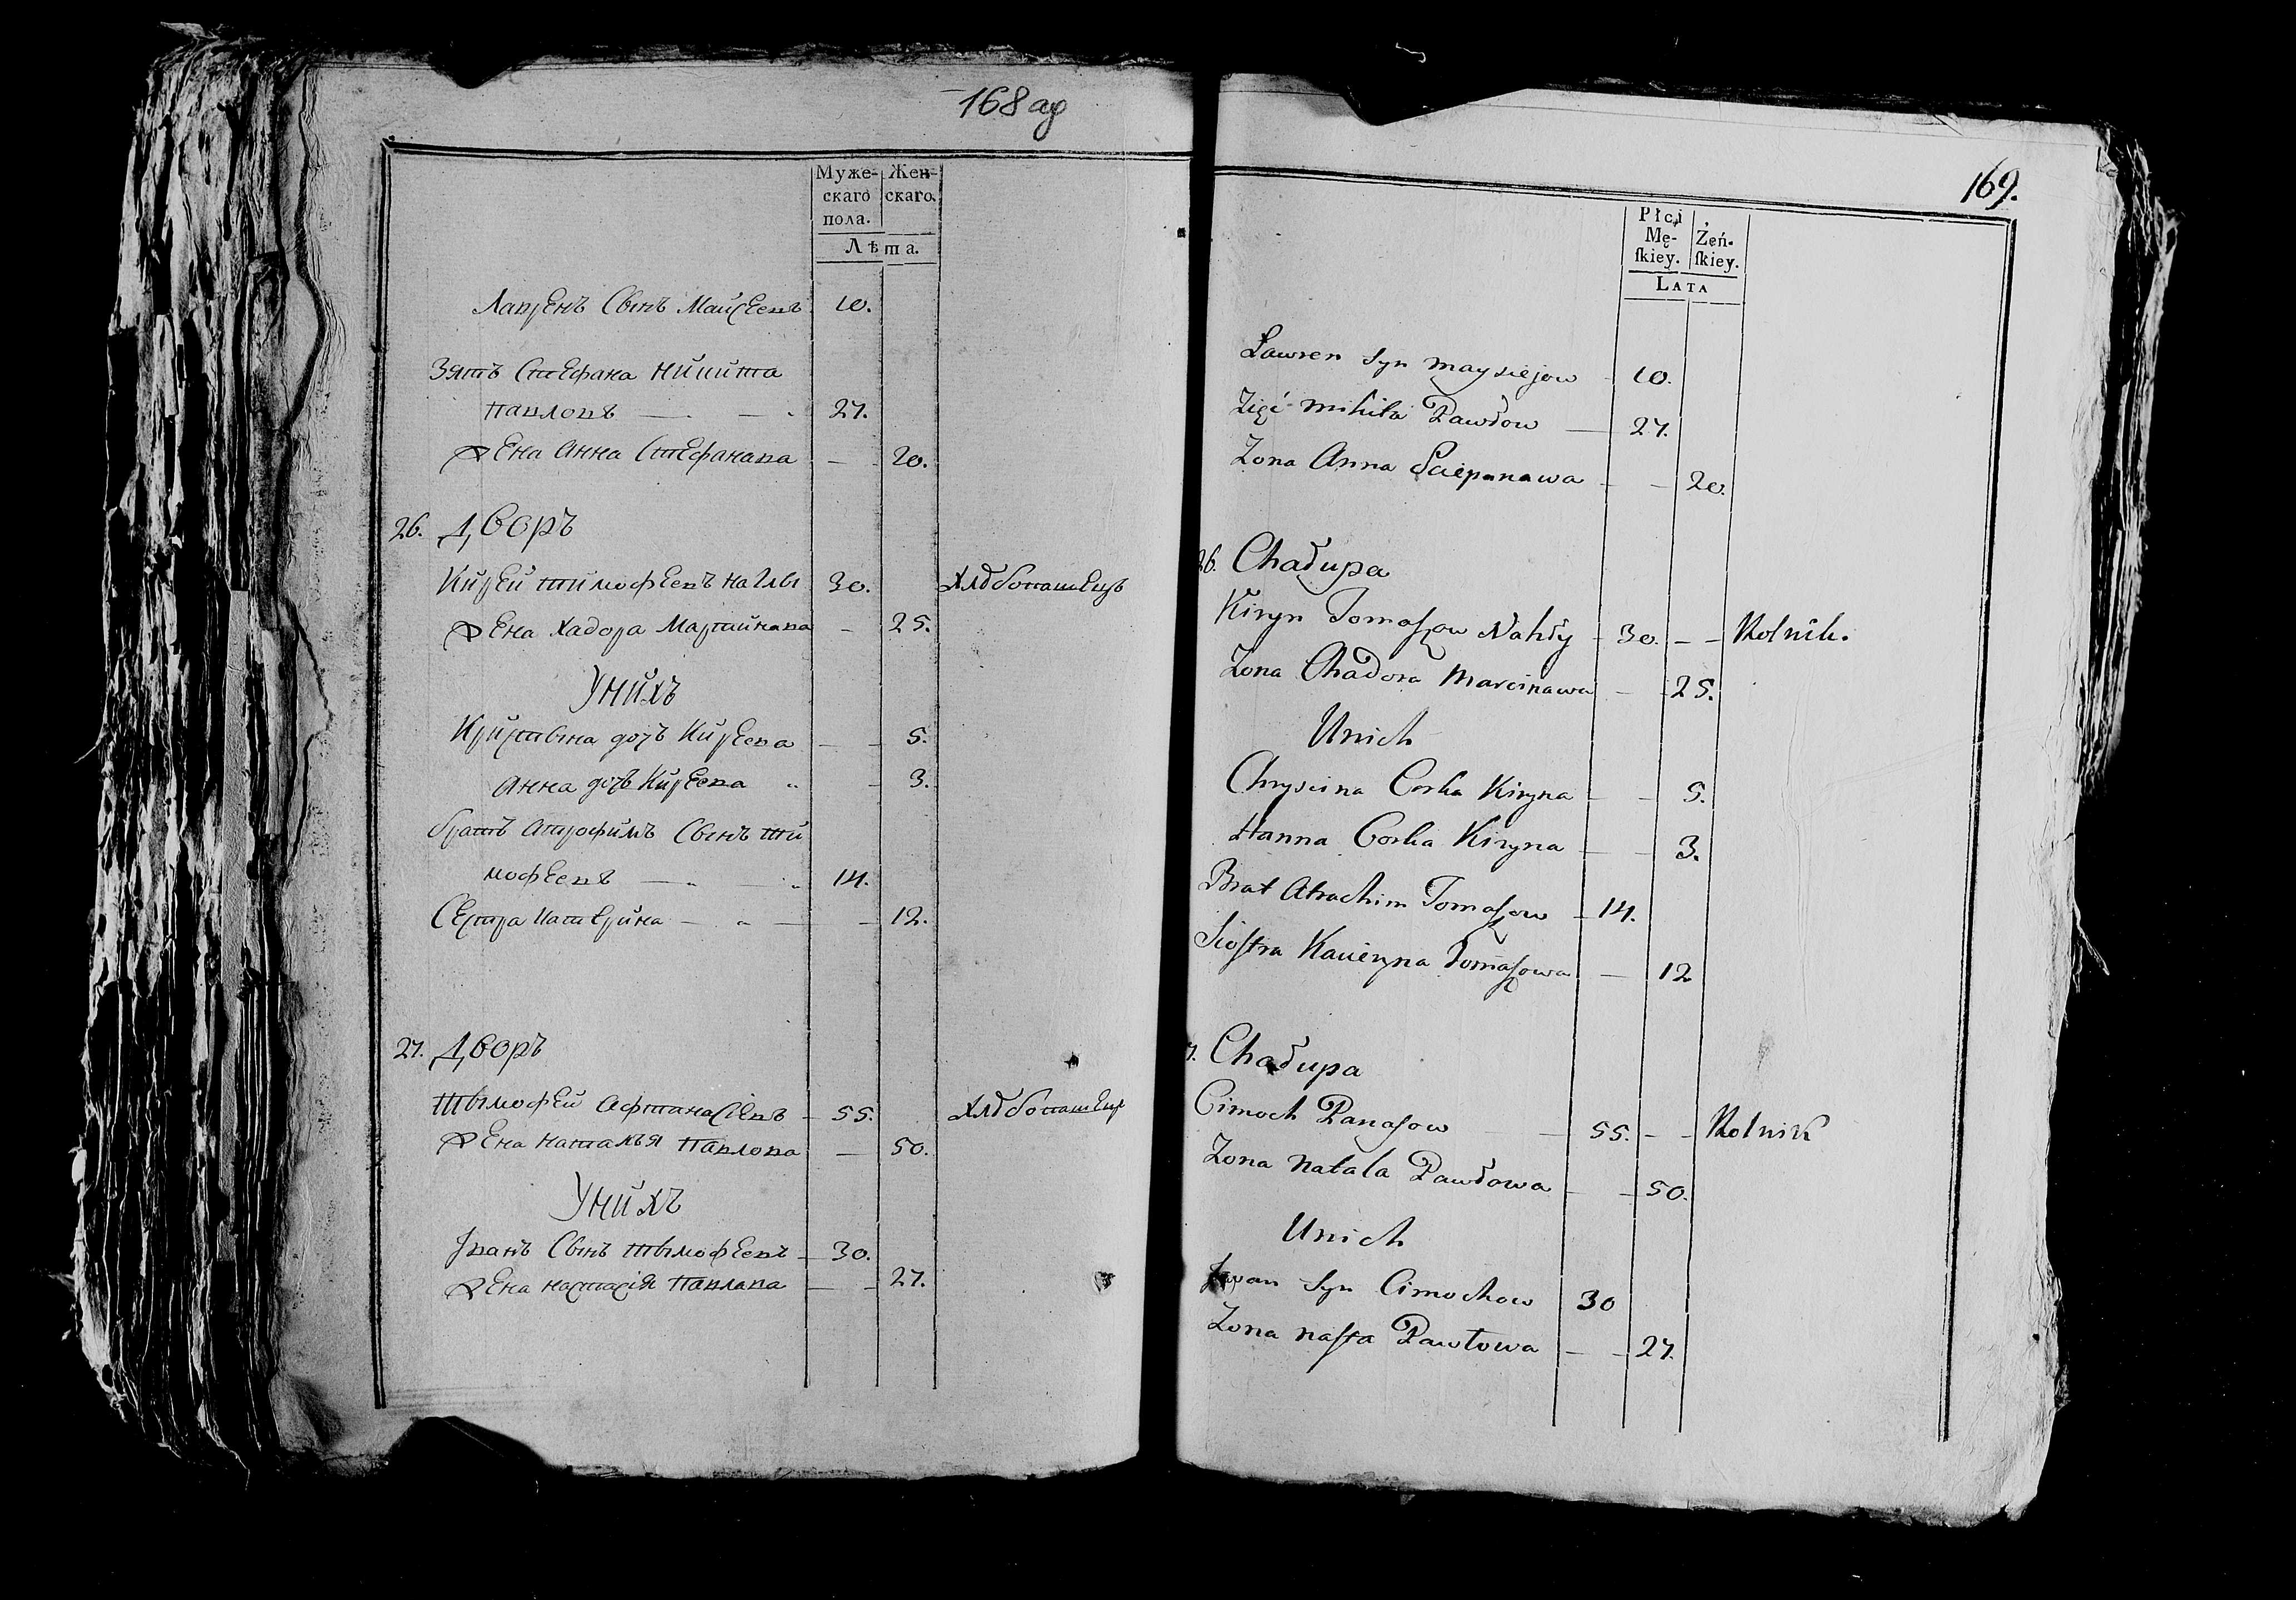 168 ад
Муже-
скаго
пола.
Жен-
скаго.
Лѣта.
Лавренъ Сынъ Майсеевъ 10.
Зять Стефана Никита
Павловъ — — 27.
Жена Анна Стефанава — 20.
26. Дворъ
Кирей Тимофеевъ Наглы 30. Хлѣбопашецъ
Жена Хадора Мартинава — 25.
Унихъ
Кристына дочь Киреева — — 5.
Анна дочь Киреева — 3.
братъ Атрофимъ Сынъ Ти
мофеевъ — — 14.
Сестра Катерина — — — 12.
27. Дворъ
Тымофей Афтанасіевъ — 55. Хлѣбопашец
Жена Наталья Павлова — 50.
Унихъ
Іванъ Сынъ Тымофеевъ — 30.
Жена Настасія Павлава — — 27.
169.
Płci
Mę-
ſkiey.
Żeń-
ſkiey.
LATA
Lawren Syn Maysiejow 10.
Zięć Mikita Pawłow — 27.
Zona Anna Sciepanawa — — 20.
26. Chałupa
Kiryn Tomaſzow Nahły — 30. — — Rolnik.
Zona Chadora Marcinawa — 25.
Unich
Chryscina Corka Kiryna — — 5.
Hanna Corka Kiryna — — 3.
Brat Atrachim Tomaſzow — 14.
Sioſtra Kacieryna Tomaſzowa — 12
7. Chałupa
Cimoch Panaſow — 55. — — Rolnik
Zona Natala Pawłowa — — 50.
Unich
Jwan Syn Cimochow 30
Zona Naſta Pawłowa — — 27.